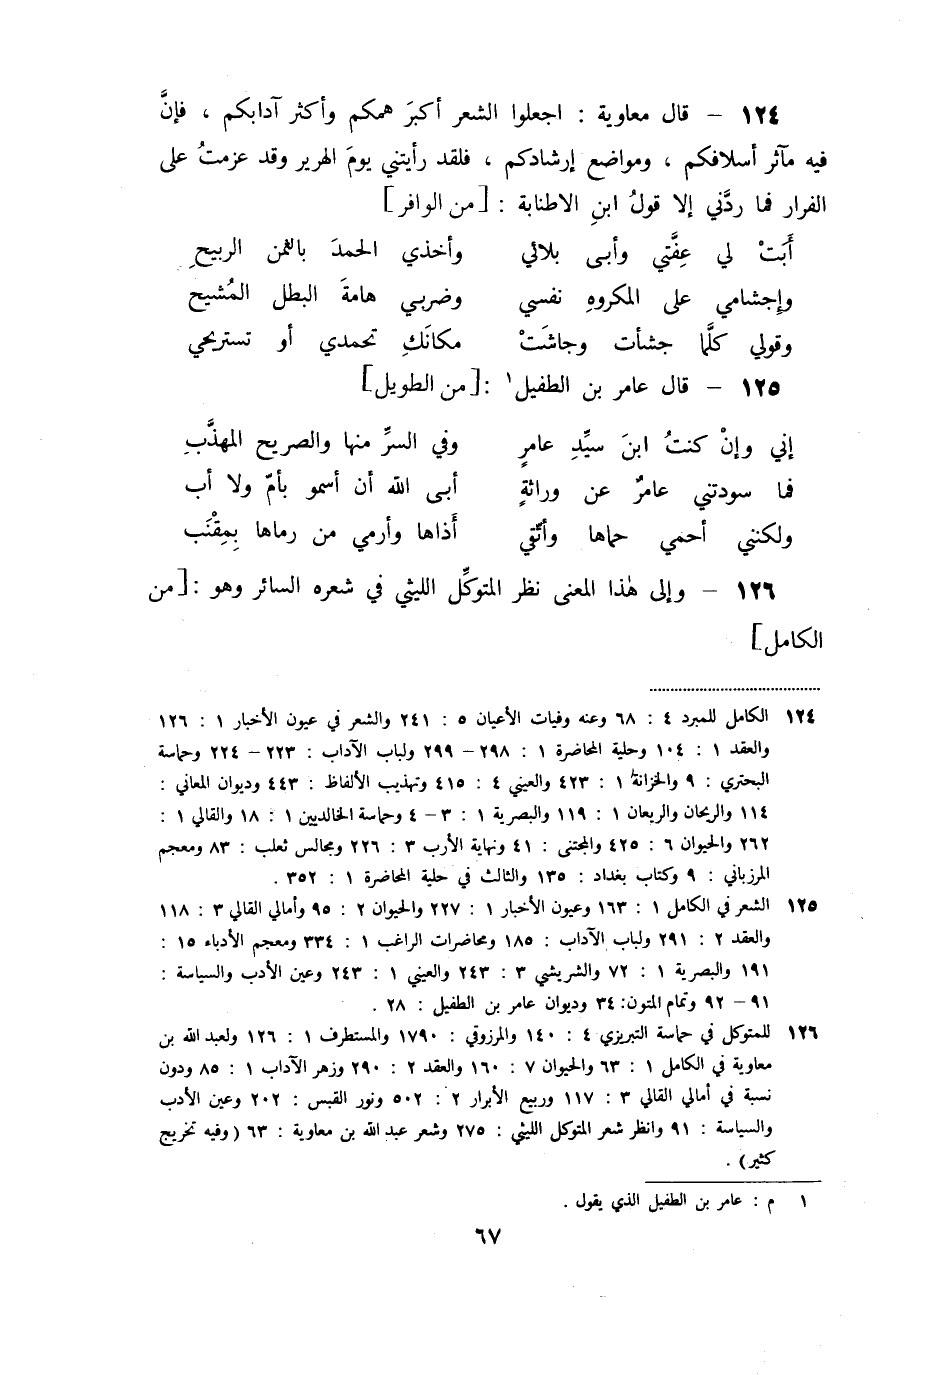 ١٢٤ – قال معاوية : اجعلوا الشعر أكبرَ همكم وأكثر آدابكم ، فإنَّ
فيه مآثر أسلافكم ، ومواضع إرشادكم ، فلقد رأيتني يومَ الهرير وقد عزمتُ على
الفرار فما ردَّني إلا قولُ ابنِ الاطنابة : [من الوافر]
أَبَتْ لي عِفَّتي وأبى بلائي وأخذي الحمدَ بالثمن الربيحِ
وإجشامي على المكروهِ نفسي وضربي هامةَ البطل المُشيح
وقولي كلَّما جشأت وجاشَتْ مكانَكِ تحمدي أو تستريحي
١٢٥ – قال عامر بن الطفيل١ :[من الطويل]
إني وإنْ كنتُ ابنَ سيِّدِ عامرٍ وفي السرِّ منها والصريح المهذَّبِ
فما سودتني عامرٌ عن وراثةٍ أبى الله أن أسمو بأمّ ولا أب
ولكنني أحمي حماها وأتَّقي أَذاها وأرمي من رماها بِمِقْنَب
١٢٦ – وإلى هٰذا المعنى نظر المتوكِّل الليثي في شعره السائر وهو :[من
الكامل]
١٢٤ الكامل للمبرد ٤ : ٦٨ وعنه وفيات الأعيان ٥ : ٢٤١ والشعر في عيون الأخبار ١ : ١٢٦
والعقد ١ : ١٠٤ وحلية المحاضرة ١ : ٢٩٨ – ٢٩٩ ولباب الآداب : ٢٢٣ – ٢٢٤ وحماسة
البحتري : ٩ والخزانة ١ : ٤٢٣ والعيني ٤ : ٤١٥ وتهذيب الألفاظ : ٤٤٣ وديوان المعاني :
١١٤ والريحان والريعان ١ : ١١٩ والبصرية ١ : ٣ – ٤ وحماسة الخالديين ١ : ١٨ والقالي ١ :
٢٦٢ والحيوان ٦ : ٤٢٥ والمجتنى : ٤١ ونهاية الأرب ٣ : ٢٢٦ ومجالس ثعلب : ٨٣ ومعجم
المرزباني : ٩ وكتاب بغداد : ١٣٥ والثالث في حلية المحاضرة ١ : ٣٥٢ .
١٢٥ الشعر في الكامل ١ : ١٦٣ وعيون الأخبار ١ : ٢٢٧ والحيوان ٢ : ٩٥ وأمالي القالي ٣ : ١١٨
والعقد ٢ : ٢٩١ ولباب الآداب : ١٨٥ ومحاضرات الراغب ١ : ٣٣٤ ومعجم الأدباء ١٥ :
١٩١ والبصرية ١ : ٧٢ والشريشي ٣ : ٢٤٣ والعيني ١ : ٢٤٣ وعين الأدب والسياسة :
٩١ – ٩٢ وتمام المتون: ٣٤ وديوان عامر بن الطفيل : ٢٨ .
١٢٦ للمتوكل في حماسة التبريزي ٤ : ١٤٠ والمرزوقي : ١٧٩٠ والمستطرف ١ : ١٢٦ ولعبد الله بن
معاوية في الكامل ١ : ٦٣ والحيوان ٧ : ١٦٠ والعقد ٢ : ٢٩٠ وزهر الآداب ١ : ٨٥ ودون
نسبة في أمالي القالي ٣ : ١١٧ وربيع الأبرار ٢ : ٥٠٢ ونور القبس : ٢٠٢ وعين الأدب
والسياسة : ٩١ وانظر شعر المتوكل الليثي : ٢٧٥ وشعر عبد الله بن معاوية : ٦٣ (وفيه تخريج
كثير) .
١ م : عامر بن الطفيل الذي يقول .
٦٧